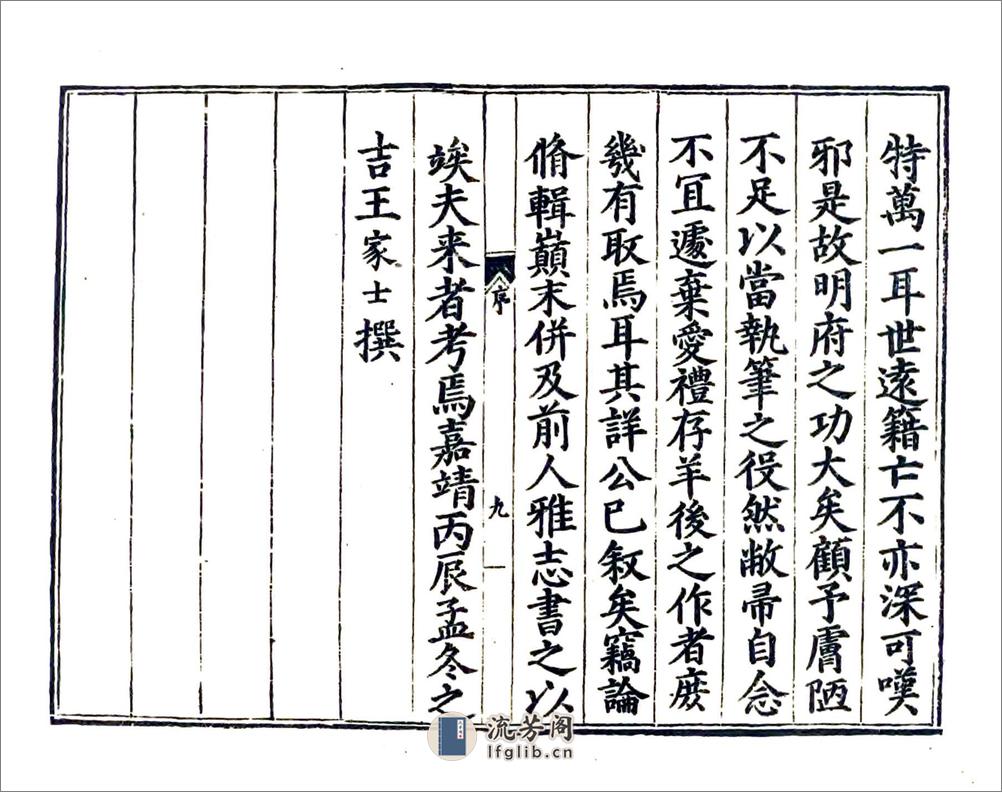 特萬一耳世遠籍亡不亦深可嘆
邪是故明府之功大矣顧予膚陋
不足以當執筆之役然敝帚自念
不宜遽棄愛禮存羊後之作者庻
幾有取焉耳其詳公已叙矣竊論
脩輯巔末併及前人雅志書之以
序
九
竢夫来者考焉嘉靖丙辰孟冬之
吉王家士撰
流芳阁
lfglib.cn